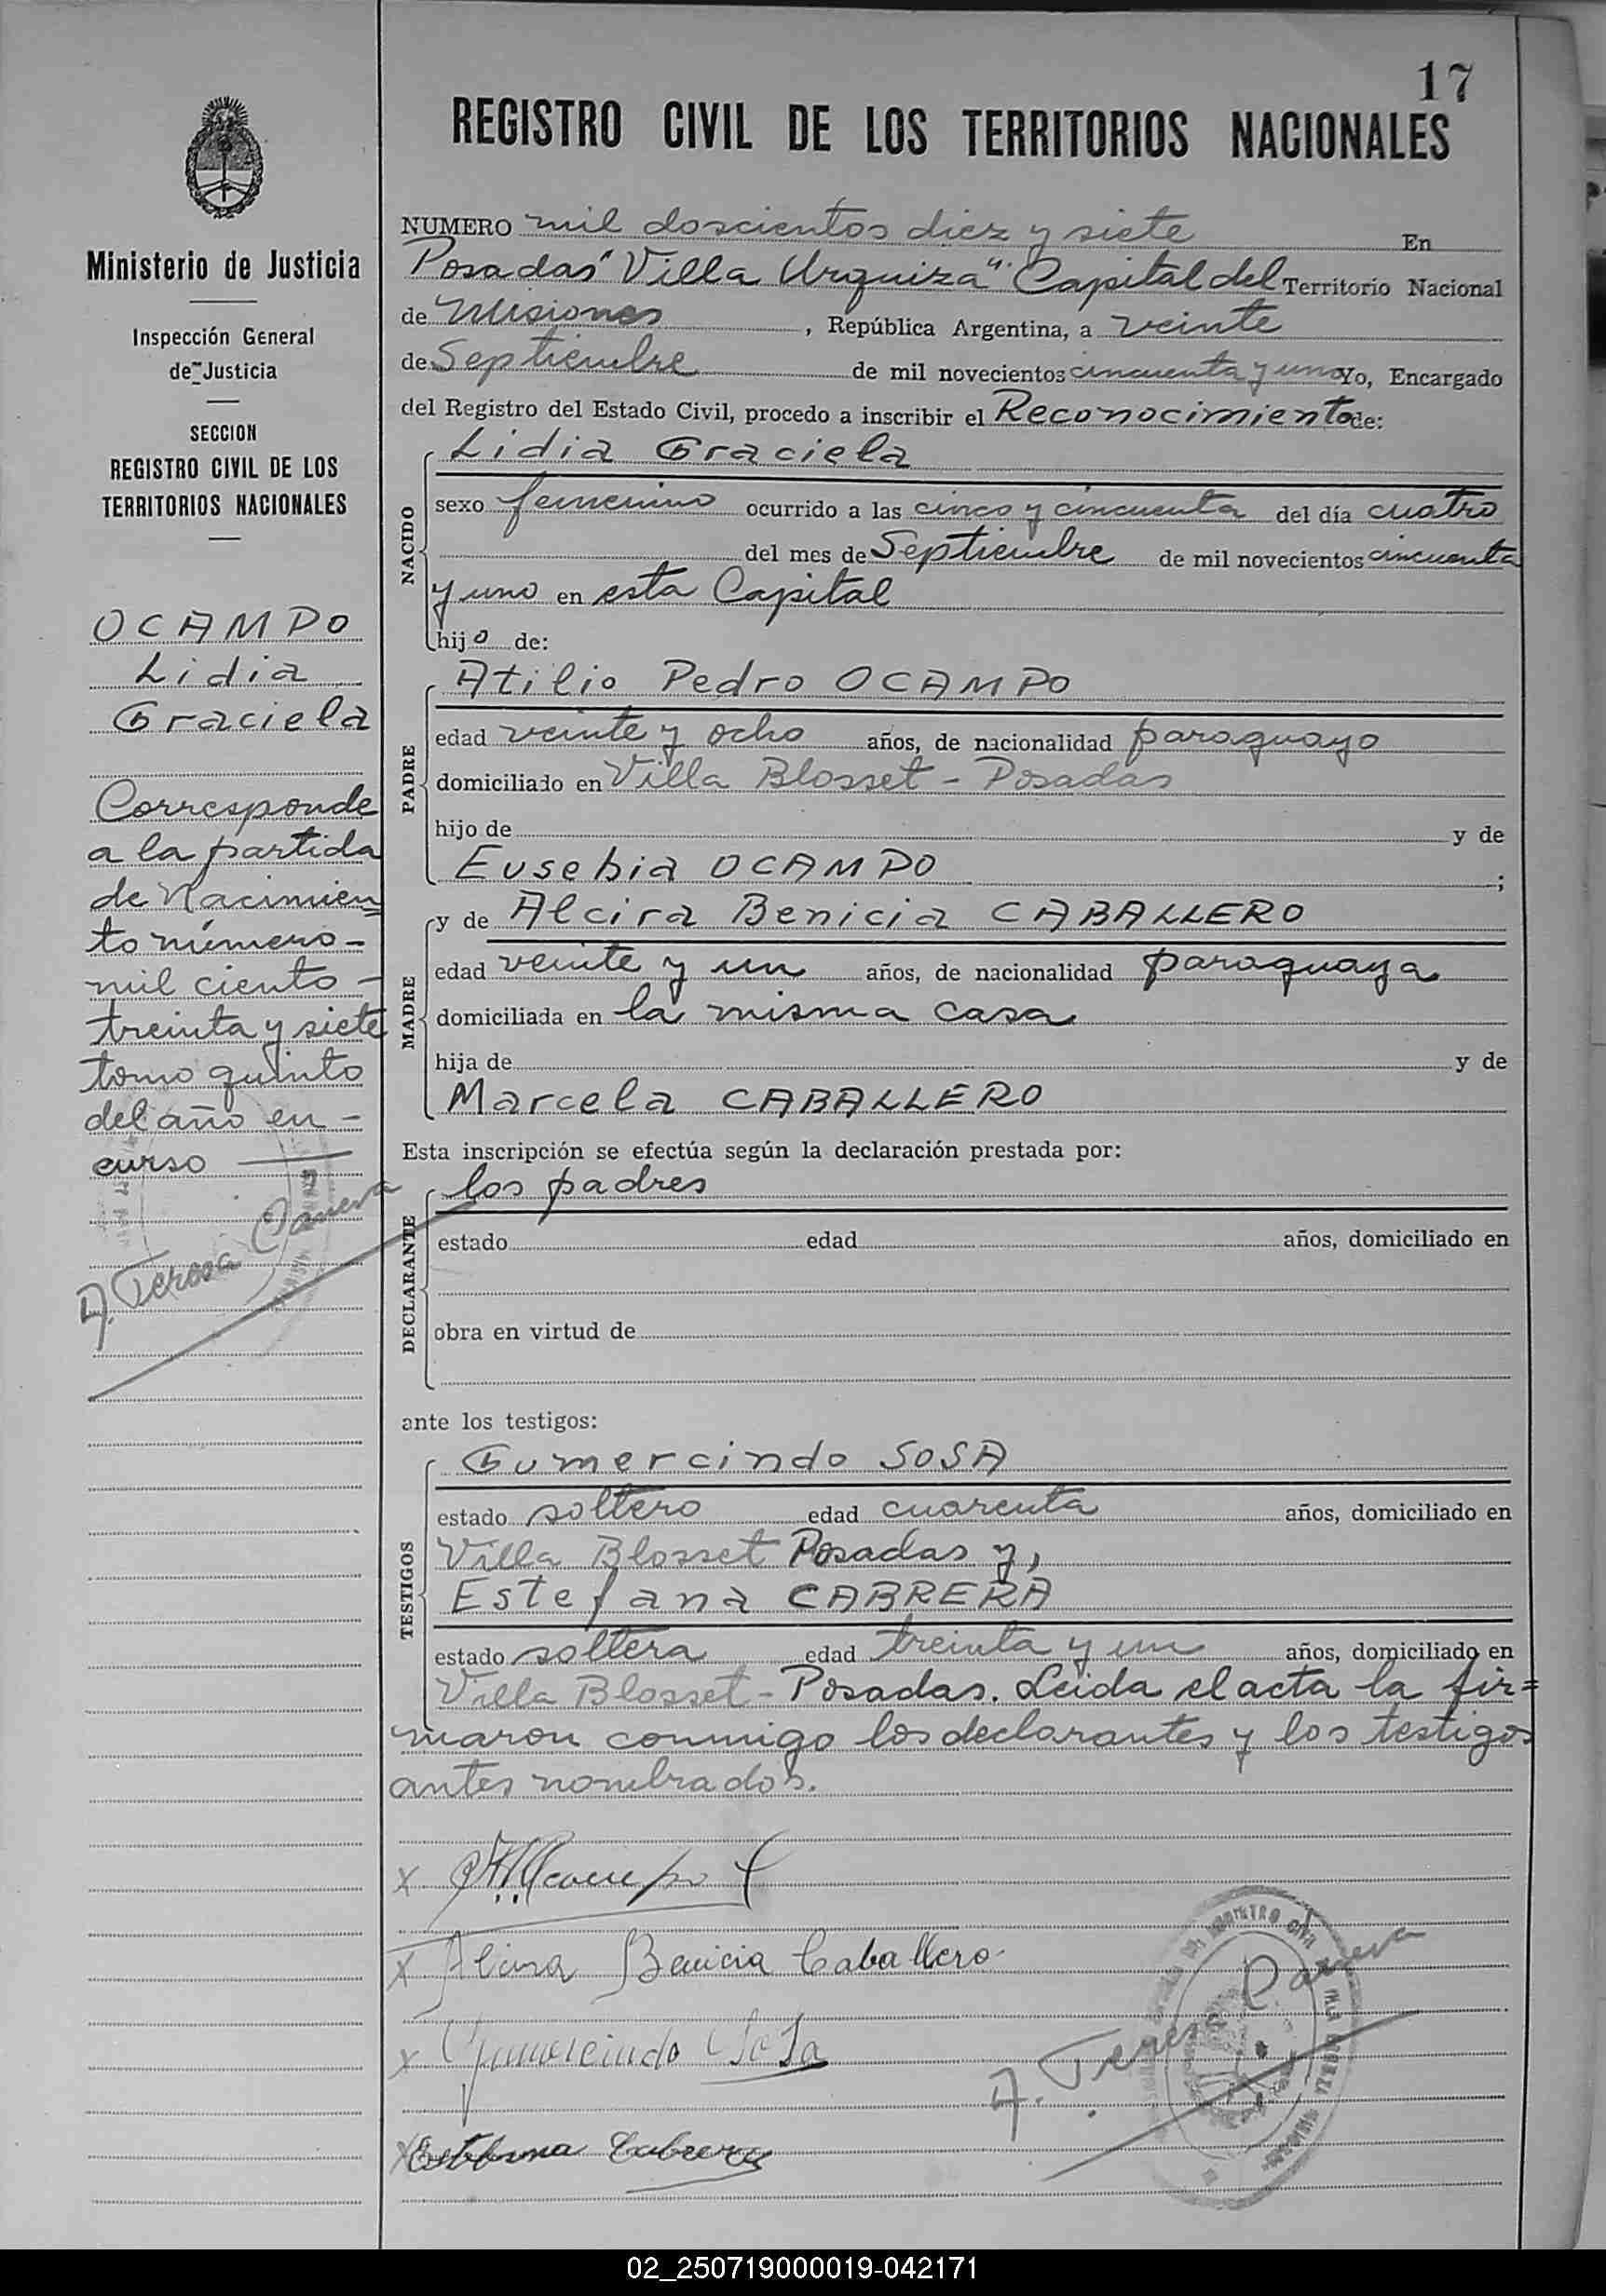 17
REGISTRO CIVIL DE LOS TERRITORIOS NACIONALES
Ministerio de Justicia
Inspección General
de Justicia
SECCION
REGISTRO CIVIL DE LOS
TERRITORIOS NACIONALES
OCAMPO
Lidia
Graciela
Corresponde
a la partida
de Nacimien=
to número-
mil ciento -
treinta y siete
tomo quinto
del año en -
curso
A. Teresa Caneva
NUMERO mil doscientos diez y siete En
Posadas "Villa Urquiza" Capital del Territorio Nacional
de Misiones, República Argentina, a veinte
de Septiembre de mil novecientos cincuenta y uno Yo, Encargado
del Registro del Estado Civil, procedo a inscribir el Reconocimiento de:
NACIDO
Lidia Graciela
sexo femenino ocurrido a las cinco y cincuenta del día cuatro
del mes de Septiembre de mil novecientos cincuenta
y uno en esta Capital
hijo de:
PADRE
Atilio Pedro OCAMPO
edad veinte y ocho años, de nacionalidad paraguayo
domiciliado en Villa Blosset - Posadas
hijo de y de
Eusebia OCAMPO ;
MADRE
y de Alcira Benicia CABALLERO
edad veinte y un años, de nacionalidad paraguaya
domiciliada en la misma casa
hija de y de
Marcela CABALLERO
Esta inscripción se efectúa según la declaración prestada por:
DECLARANTE
los padres
estado edad años, domiciliado en
obra en virtud de
ante los testigos:
TESTIGOS
Gumercindo SOSA
estado soltero edad cuarenta años, domiciliado en
Villa Blosset Posadas y,
Estefana CABRERA
estado soltera edad treinta y un años, domiciliado en
Villa Blosset - Posadas. Leida el acta la fir=
maron conmigo los declarantes y los testigos
antes nombrados.
x Ocampo
x Alcira Benicia Caballero
x Gumercindo Sosa
A. Teresa Caneva
x Cabrera
02_250719000019-042171